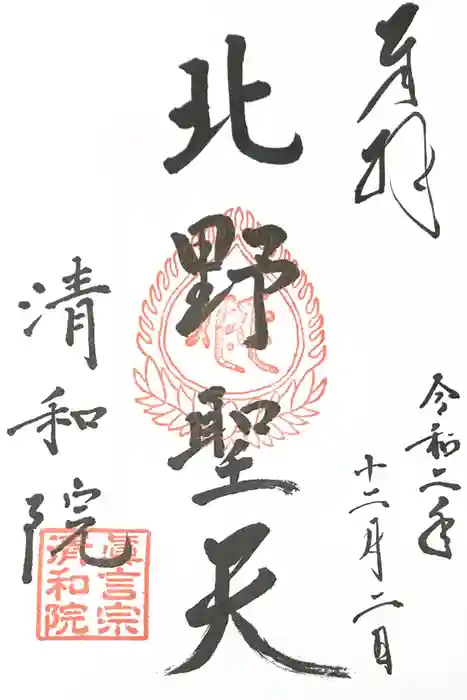 奉拝
令和二年
十二月二日
北野聖天
清和院
眞言宗
清和院